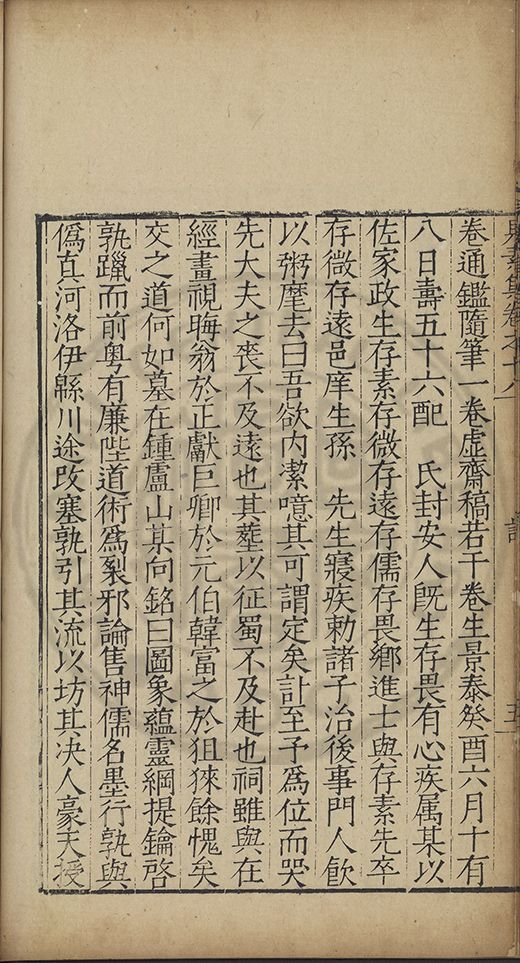 卷通鑑隨筆一卷虛齋稿若干卷生景泰癸酉六月十有
八日壽五十六配　氏封安人旣生存畏有心疾属某以
佐家政生存素存微存遠存儒存畏鄉進士與存素先卒
存微存遠邑庠生孫　先生寢疾勑諸子治後事門人飮
以粥麾去曰吾欲內潔噫其可謂定矣訃至予爲位而哭
先大夫之喪不及遠也其塟以征蜀不及赴也祠雖與在
經畫視晦翁於正獻巨卿於元伯韓富之於狙猍餘愧矣
交之道何如墓在鍾盧山某向銘曰圖象蘊靈綱提鑰啓
孰躐而前粤有廉陛道術爲裂邪論售神儒名墨行孰與
僞真河洛伊緜川途改塞孰引其流以坊其决人豪天授